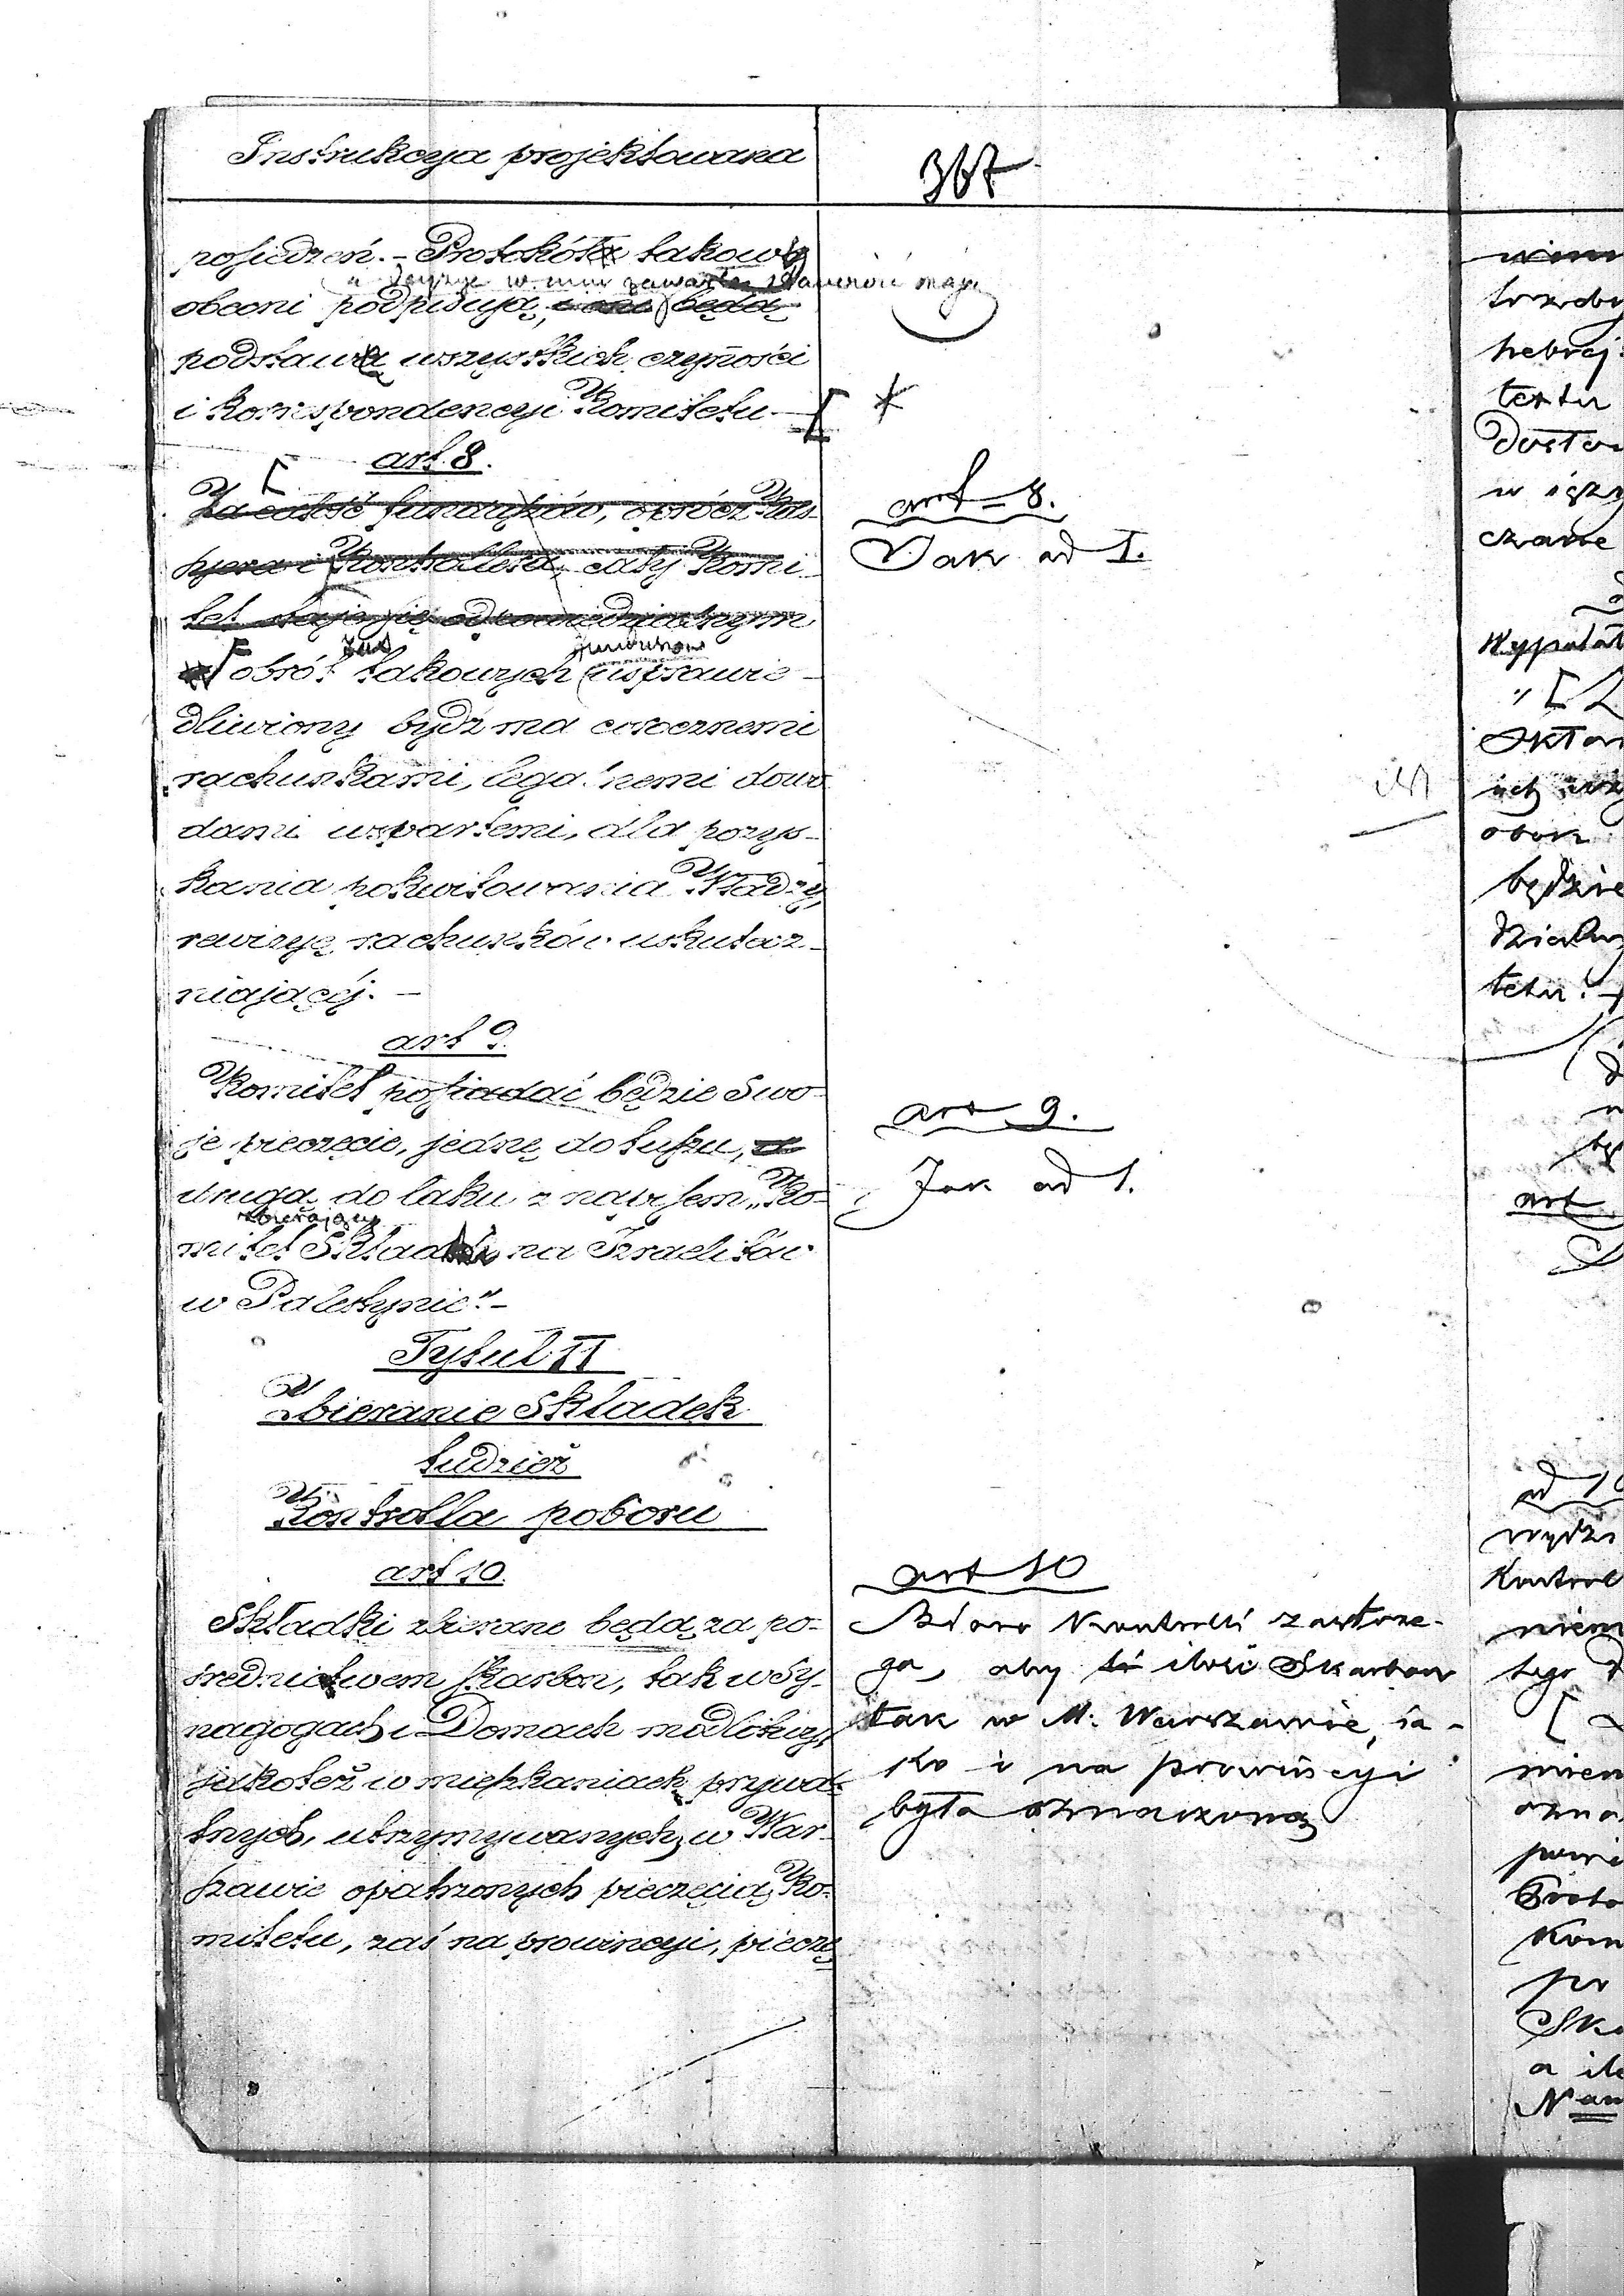 Instrukcya projektowana
367
posiedzeń. – Protokóła takowy
a decyzje w nim zawarte stanowić mają
obecni podpisują, i one będą
podstawą wszystkich czynności
i korrespondencyi Komitetu
art. 8.
Za całość funduszów, oprócz Kas-
sjera i Kontrollera, cały Komi-
tet staje się odpowiedzialnym
obrót takowych funduszów usprawie-
dliwiony bydź ma corocznemi
rachunkami, legalnemi dowo
dami wspartemi, dla pozys-
kania pokwitowania Władzy
rewizyę rachunków uskutecz-
niającéj. –
art 9.
Komitet posiadać będzie swo-
je pieczęcie, jednę do tuszu,
drugą do laku z napisem „Ko-
zbierający
mitet Składki na Izraelitów
w Palestynie” –
Tytuł II
Zbieranie Składek
tudzież
Kontrolla poboru
art 10.
Składki zbierane będą za po-
średnictwem skarbon, tak w Sy-
nagogach i Domach modlitwy,
jakoteż w mieszkaniach prywa-
tnych, utrzymywanych, w War-
szawie opatrzonych pieczęcią Ko-
mitetu, zaś na prowincyi, pieczę
art – 8.
Jak ad I.
art 9.
Jak ad 1.
art 10
Biuro Kontrolli zastrze-
ga, aby ilość Skarbon
tak w M. Warszawie, ja-
ko i na prowincyi
była oznaczoną
trzeby
hebraj
textu
czane
obok
będzie
tetu.
art
ad 10
Kontrol
niem
tego
Kom
po
a il